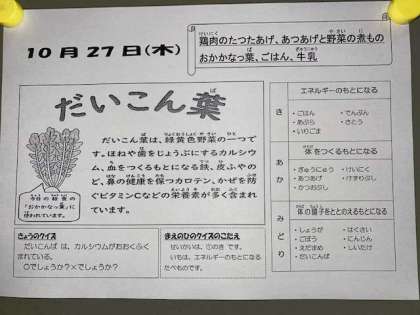 10月27日(木)
鶏肉のたつたあげ、あつあげと野菜の煮もの
おかかなっ葉、ごはん、牛乳
だいこん葉
だいこん葉は、緑黄色野菜の一つで
す。ほねや歯をじょうぶにするカルシウ
ム、血をつくるもとになる鉄、皮ふやの
ど、鼻の健康を保つカロテン、かぜを防
ぐビタミンCなどの栄養素が多く含まれ
ています。
今日の給食の
「おかかなっ葉」に
使われています。
きょうのクイズ
だいこんばは、カルシウムがおおくふく
まれている。
○でしょうか?×でしょうか?
まえのひのクイズのこたえ
せいかいは、①のきです。
いもは、エネルギーのもとになる
たべものです。
き
エネルギーのもとになる
・ごはん ・でんぷん
・あぶら ・さとう
・いりごま
あか
体をつくるもとになる
・ぎゅうにゅう ・けいにく
・あつあげ ・けずりぶし
・かつおぶし
みどり
体の調子をととのえるもとになる
・しょうが ・はくさい
・ごぼう ・にんじん
・えだまめ ・しいたけ
・だいこんば